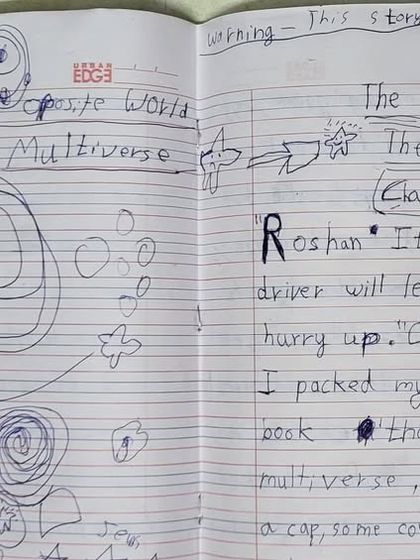 URBAN
EDGE
Oposite World
Multiverse
Warning - This story
The
The
Cha
"Roshan" It
driver will le
hurry up."
I packed my
book "the
multiverse,
a cap, some co